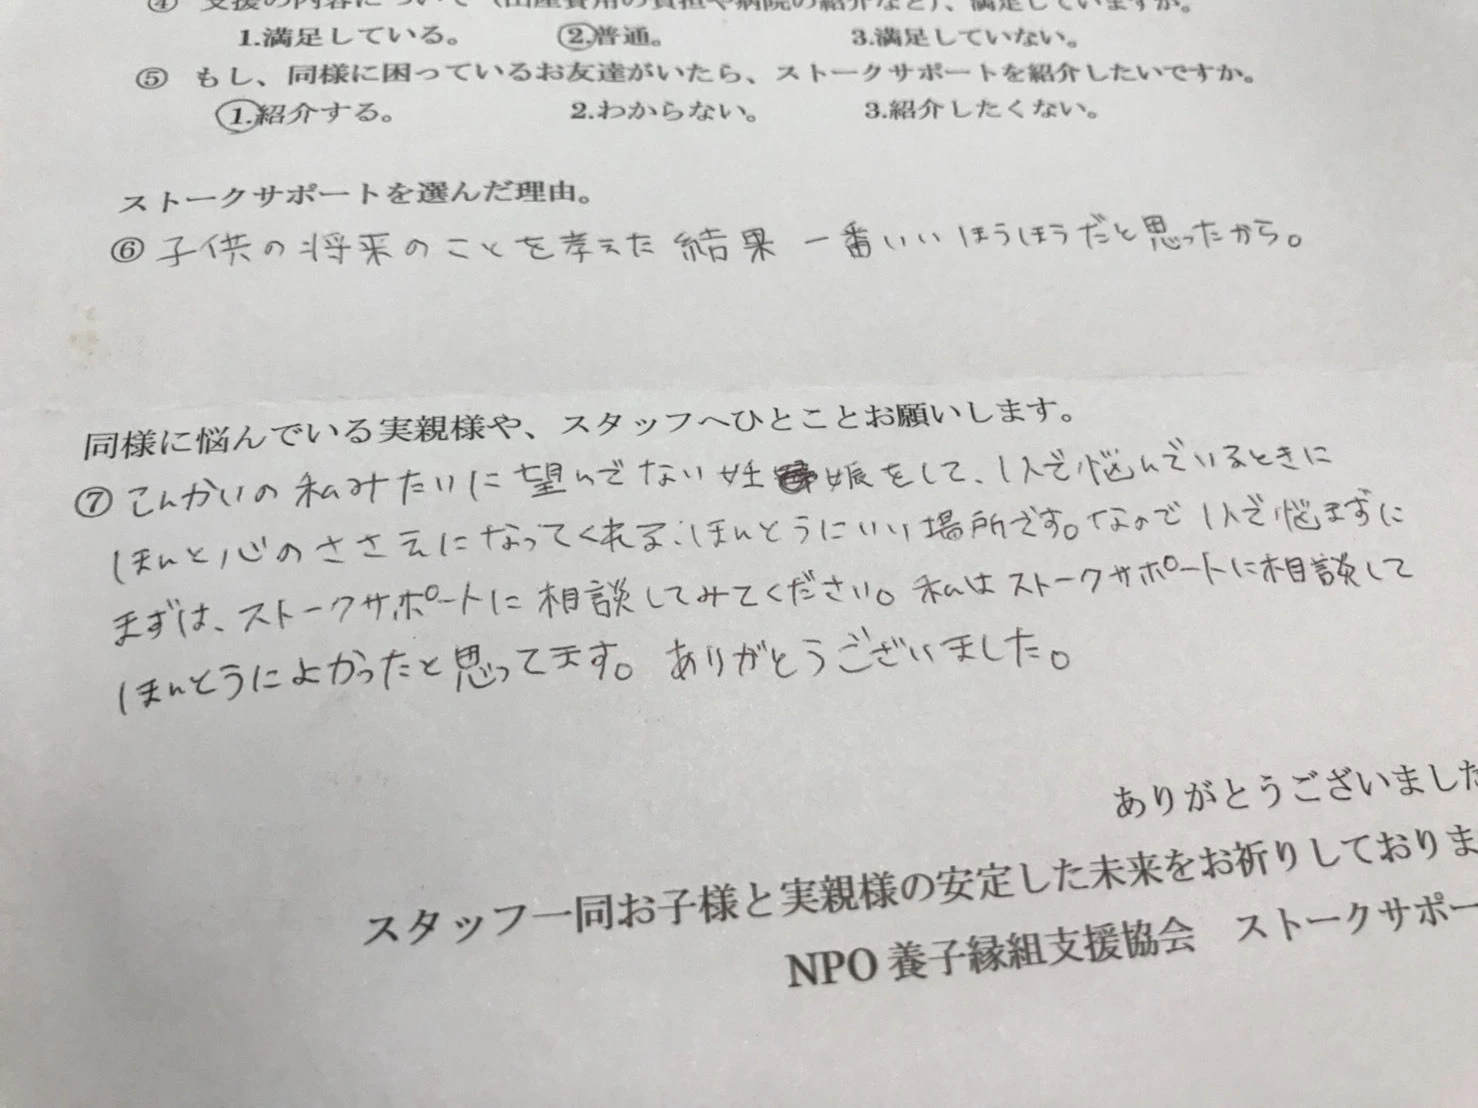 ④ 支援の内容について（出産費用の負担や病院の紹介など）、満足していますか。
1.満足している。 2.普通。 3.満足していない。
⑤ もし、同様に困っているお友達がいたら、ストークサポートを紹介したいですか。
1.紹介する。 2.わからない。 3.紹介したくない。
ストークサポートを選んだ理由。
⑥ 子供の将来のことを考えた結果 一番いいほうほうだと思ったから。
同様に悩んでいる実親様や、スタッフへひとことお願いします。
⑦ こんかいの私みたいに望んでない妊娠をして、1人で悩んでいるときに
ほんと心のささえになってくれる、ほんとうにいい場所です。なので1人で悩まずに
まずは、ストークサポートに相談してみてください。私はストークサポートに相談して
ほんとうによかったと思ってます。ありがとうございました。
ありがとうございました
スタッフ一同お子様と実親様の安定した未来をお祈りしておりま
NPO 養子縁組支援協会 ストークサポー